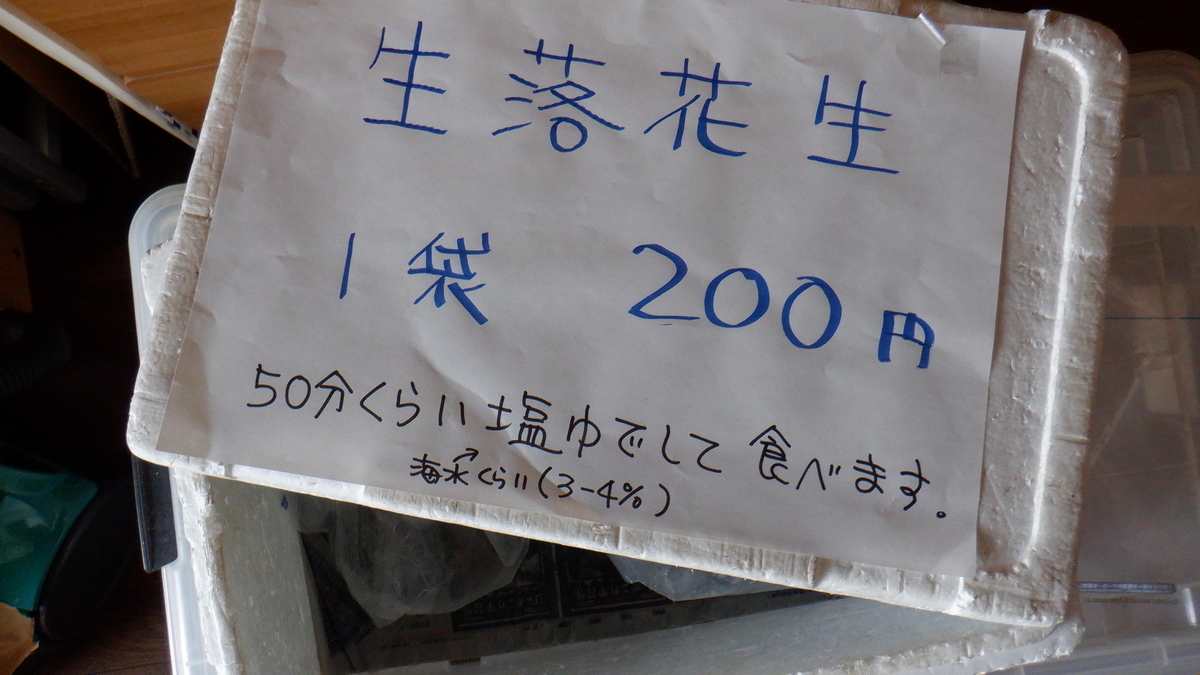 生落花生
1袋 200円
50分くらい塩ゆでして食べます。
海水くらい(3-4%)